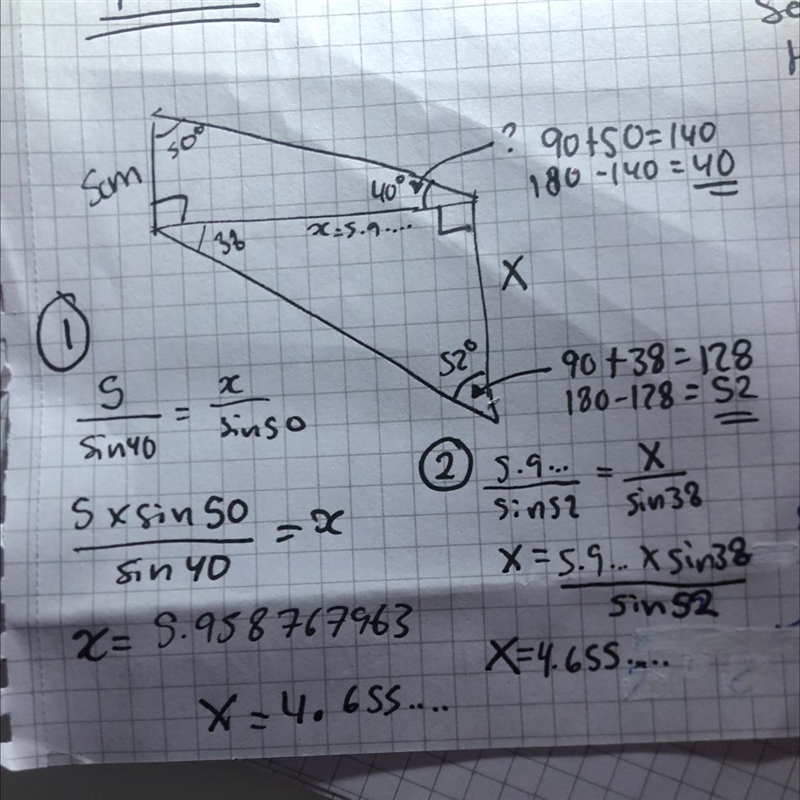 50°
5cm
40°
x=5.9....
38
X
52°
? 90+50=140
180-140=40
90+38=128
180-128=52
1
5/sin40 = x/sin50
5×sin50/sin40 = x
x= 5.958767963
X=4.655....
2
5.9.../sin52 = X/sin38
X=5.9...×sin38/sin52
X=4.655.....